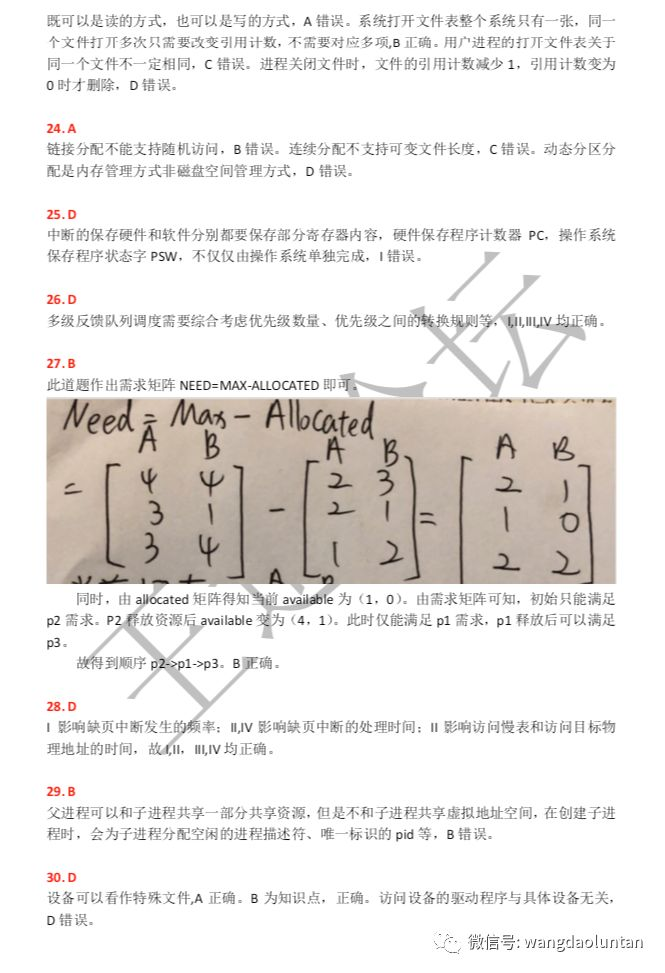 既可以是读的方式，也可以是写的方式，A 错误。系统打开文件表整个系统只有一张，同一
个文件打开多次只需要改变引用计数，不需要对应多项,B 正确。用户进程的打开文件表关于
同一个文件不一定相同，C 错误。进程关闭文件时，文件的引用计数减少 1，引用计数变为
0 时才删除，D 错误。
24. A
链接分配不能支持随机访问，B 错误。连续分配不支持可变文件长度，C 错误。动态分区分
配是内存管理方式非磁盘空间管理方式，D 错误。
25. D
中断的保存硬件和软件分别都要保存部分寄存器内容，硬件保存程序计数器 PC，操作系统
保存程序状态字 PSW，不仅仅由操作系统单独完成，I 错误。
26. D
多级反馈队列调度需要综合考虑优先级数量、优先级之间的转换规则等，I,II,III,IV 均正确。
27. B
此道题作出需求矩阵 NEED=MAX-ALLOCATED 即可。
Need = Max - Allocated
A B A B A B
= [ 4 4 ] - [ 2 3 ] = [ 2 1 ]
3 1 2 1 1 0
3 4 1 2 2 2
同时，由 allocated 矩阵得知当前 available 为（1，0）。由需求矩阵可知，初始只能满足
p2 需求。P2 释放资源后 available 变为（4，1）。此时仅能满足 p1 需求，p1 释放后可以满足
p3。
故得到顺序 p2->p1->p3。B 正确。
28. D
I 影响缺页中断发生的频率；II,IV 影响缺页中断的处理时间；II 影响访问慢表和访问目标物
理地址的时间，故 I,II，III,IV 均正确。
29. B
父进程可以和子进程共享一部分共享资源，但是不和子进程共享虚拟地址空间，在创建子进
程时，会为子进程分配空闲的进程描述符、唯一标识的 pid 等，B 错误。
30. D
设备可以看作特殊文件,A 正确。B 为知识点，正确。访问设备的驱动程序与具体设备无关，
D 错误。
微信号: wangdaoluntan